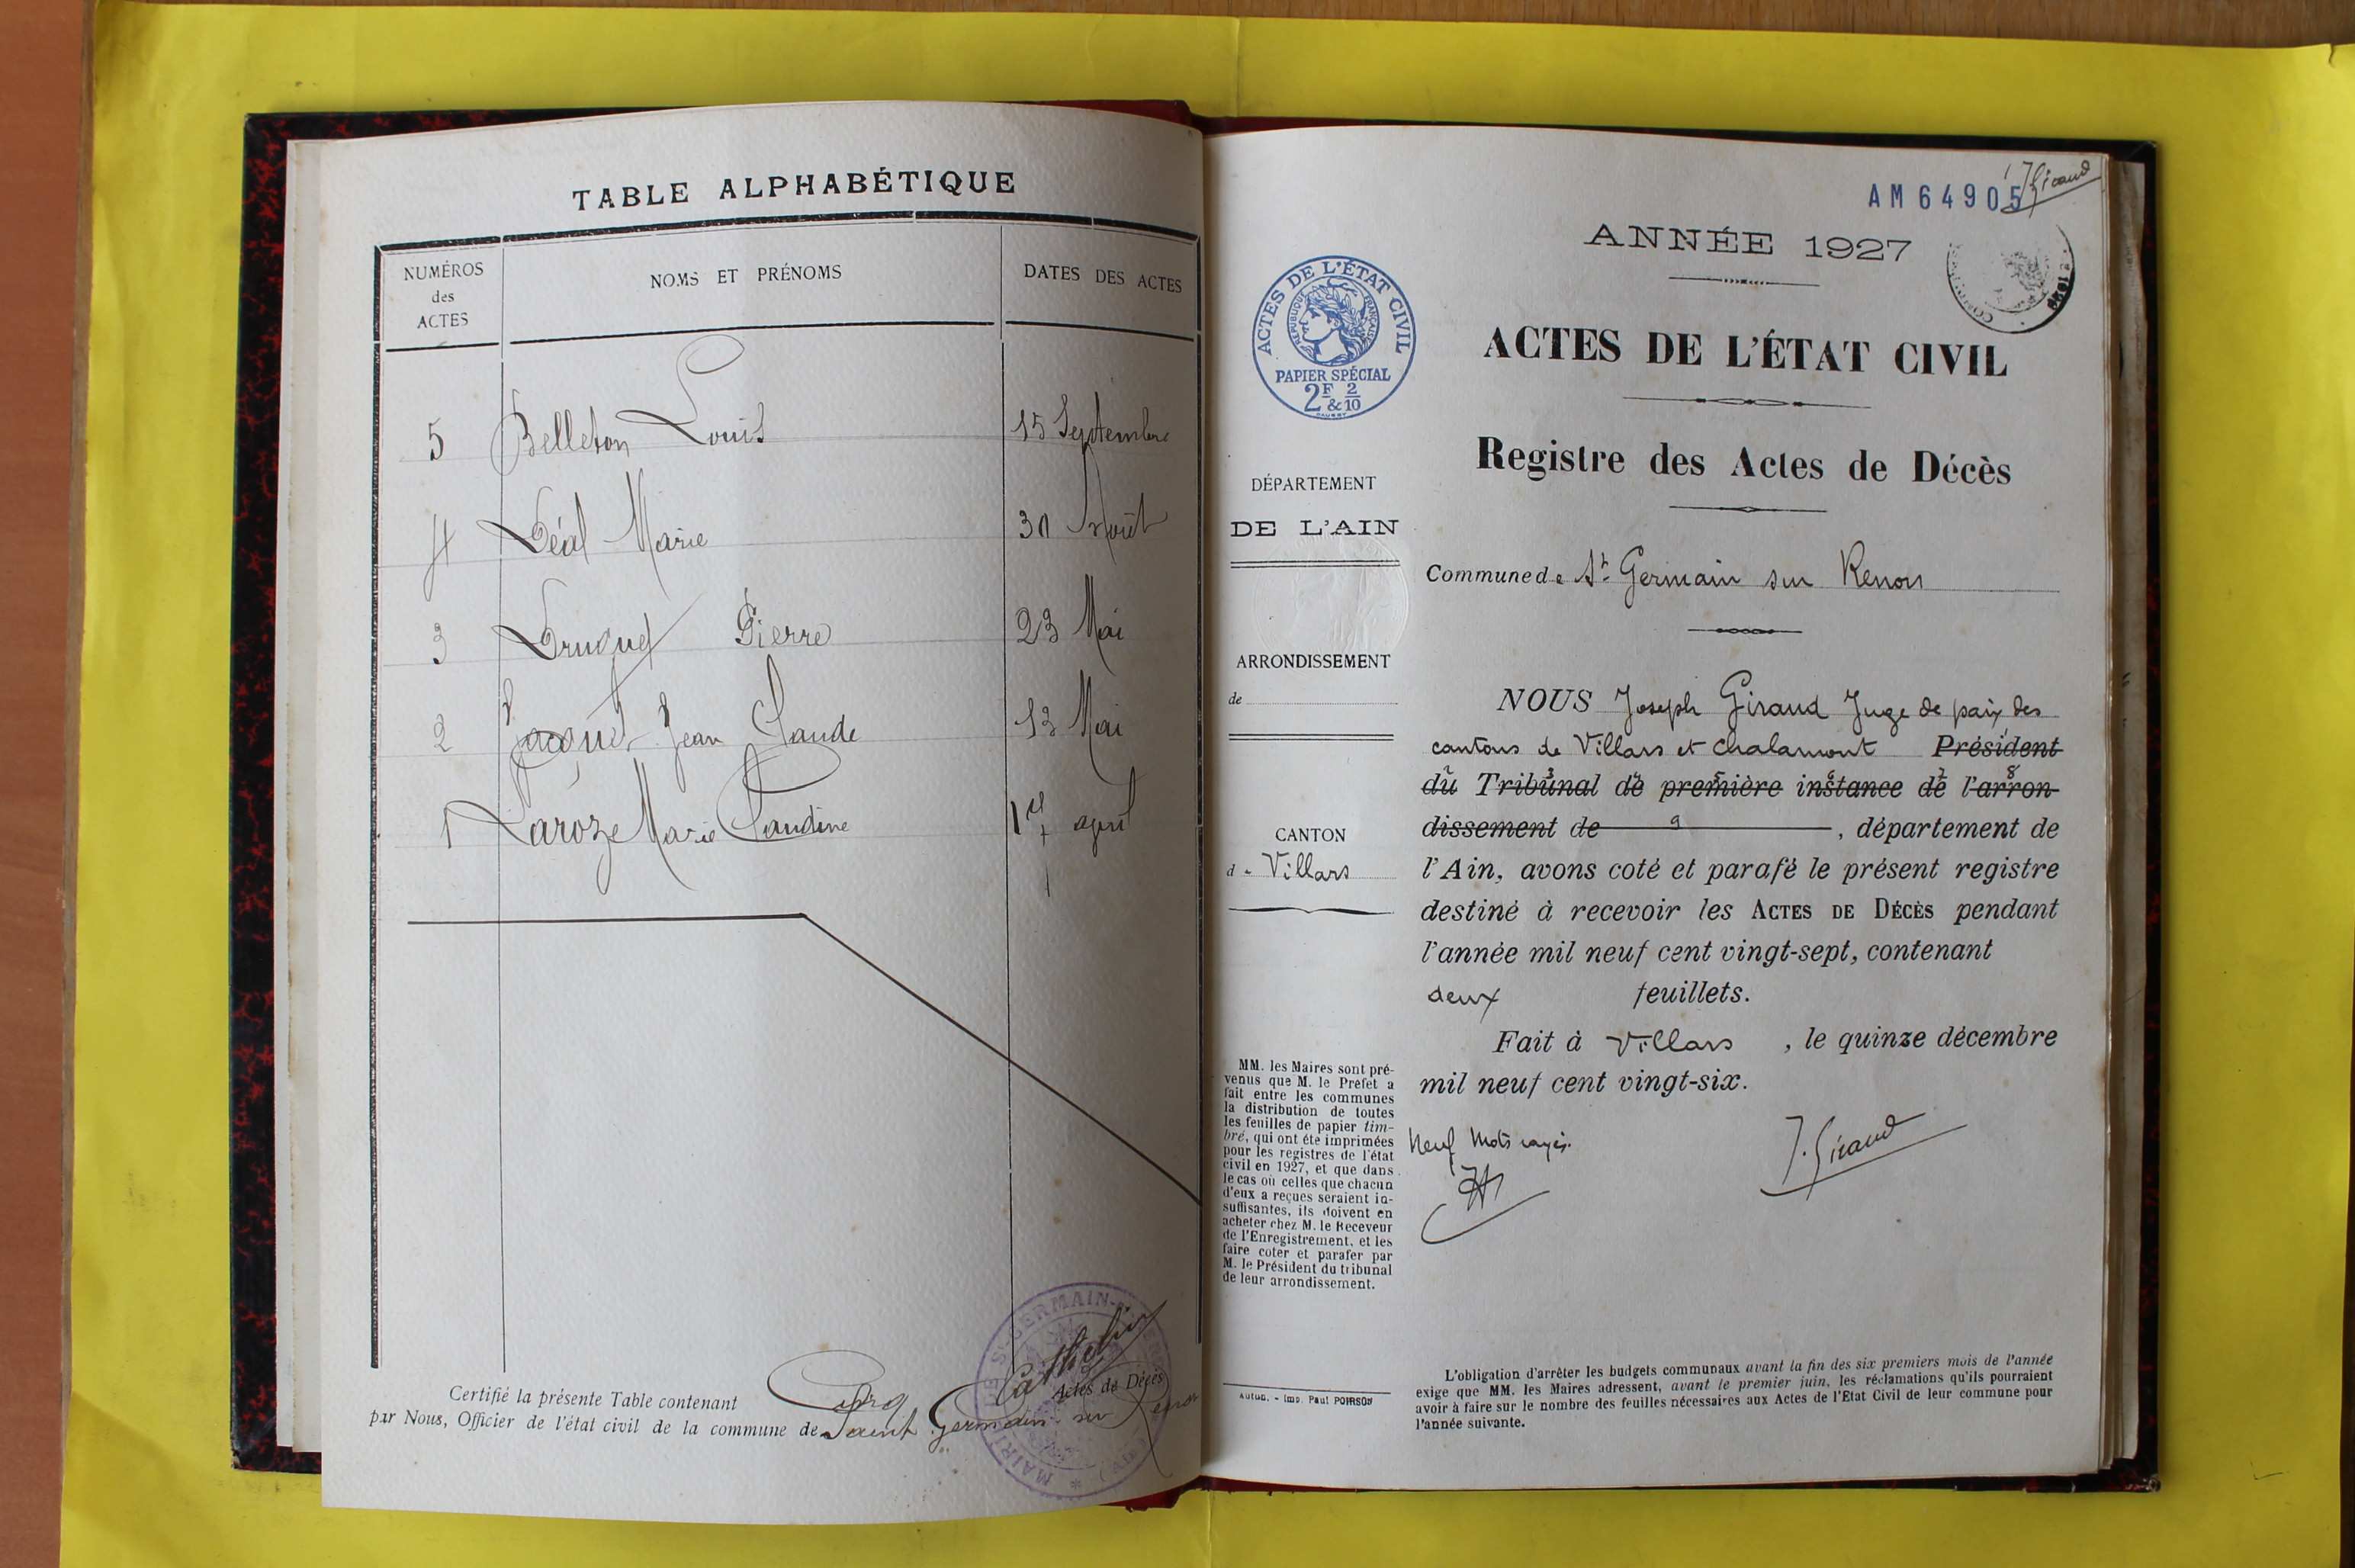 TABLE ALPHABÉTIQUE
NUMÉROS
des
ACTES
NOMS ET PRÉNOMS
DATES DES ACTES
5 Belleton Louis 15 Septembre
4 Léal Marie 30 Août
3 Pierre 23 Mai
2 Jacquet Jean Claude 13 Mai
1 Laroze Marie Claudine 1er avril
Certifié la présente Table contenant cinq Actes de Décès
par Nous, Officier de l'état civil de la commune de Saint Germain sur Renon
AM64905
J Giraud
ANNÉE 1927
ACTES DE L'ÉTAT CIVIL
RÉPUBLIQUE FRANÇAISE
PAPIER SPÉCIAL
2F & 2/10
ACTES DE L'ÉTAT CIVIL
Registre des Actes de Décès
DÉPARTEMENT
DE L'AIN
Commune de St Germain sur Renon
ARRONDISSEMENT
de
CANTON
de Villars
NOUS Joseph Giraud Juge de paix des
cantons de Villars et Chalamont Président
du Tribunal de première instance de l'arron-
dissement de , département de
l'Ain, avons coté et parafé le présent registre
destiné à recevoir les ACTES DE DÉCÈS pendant
l'année mil neuf cent vingt-sept, contenant
deux feuillets.
Fait à Villars , le quinze décembre
mil neuf cent vingt-six.
Neuf mots rayés.
J. Giraud
MM. les Maires sont pré-
venus que M. le Préfet a
fait entre les communes
la distribution de toutes
les feuilles de papier tim-
bré, qui ont été imprimées
pour les registres de l'état
civil en 1927, et que dans
le cas où celles que chacun
d'eux a reçues seraient in-
suffisantes, ils doivent en
acheter chez M. le Receveur
de l'Enregistrement, et les
faire coter et parafer par
M. le Président du tribunal
de leur arrondissement.
Autun. - Imp. Paul POIRSON
L'obligation d'arrêter les budgets communaux avant la fin des six premiers mois de l'année
exige que MM. les Maires adressent, avant le premier juin, les réclamations qu'ils pourraient
avoir à faire sur le nombre des feuilles nécessaires aux Actes de l'Etat Civil de leur commune pour
l'année suivante.